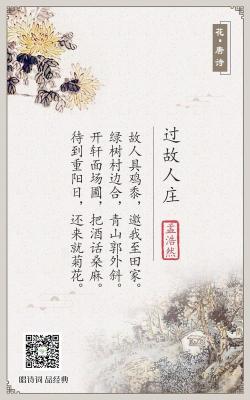 花·唐诗
过故人庄
孟浩然
故人具鸡黍，邀我至田家。
绿树村边合，青山郭外斜。
开轩面场圃，把酒话桑麻。
待到重阳日，还来就菊花。
唱诗词 品经典